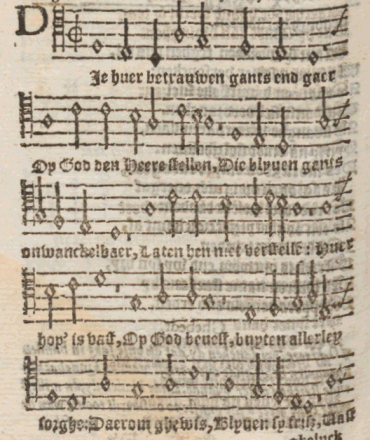 D
Je huer betrauwen gants end gaer
Op God den Heere stellen, Die blyuen gants
onwanckelbaer, Laten hen niet verstellē: Huer
hop' is vast, Op God beuest, buyten allerley
sorghe: Daerom ghewis, Blyuen sy frisz, Uast